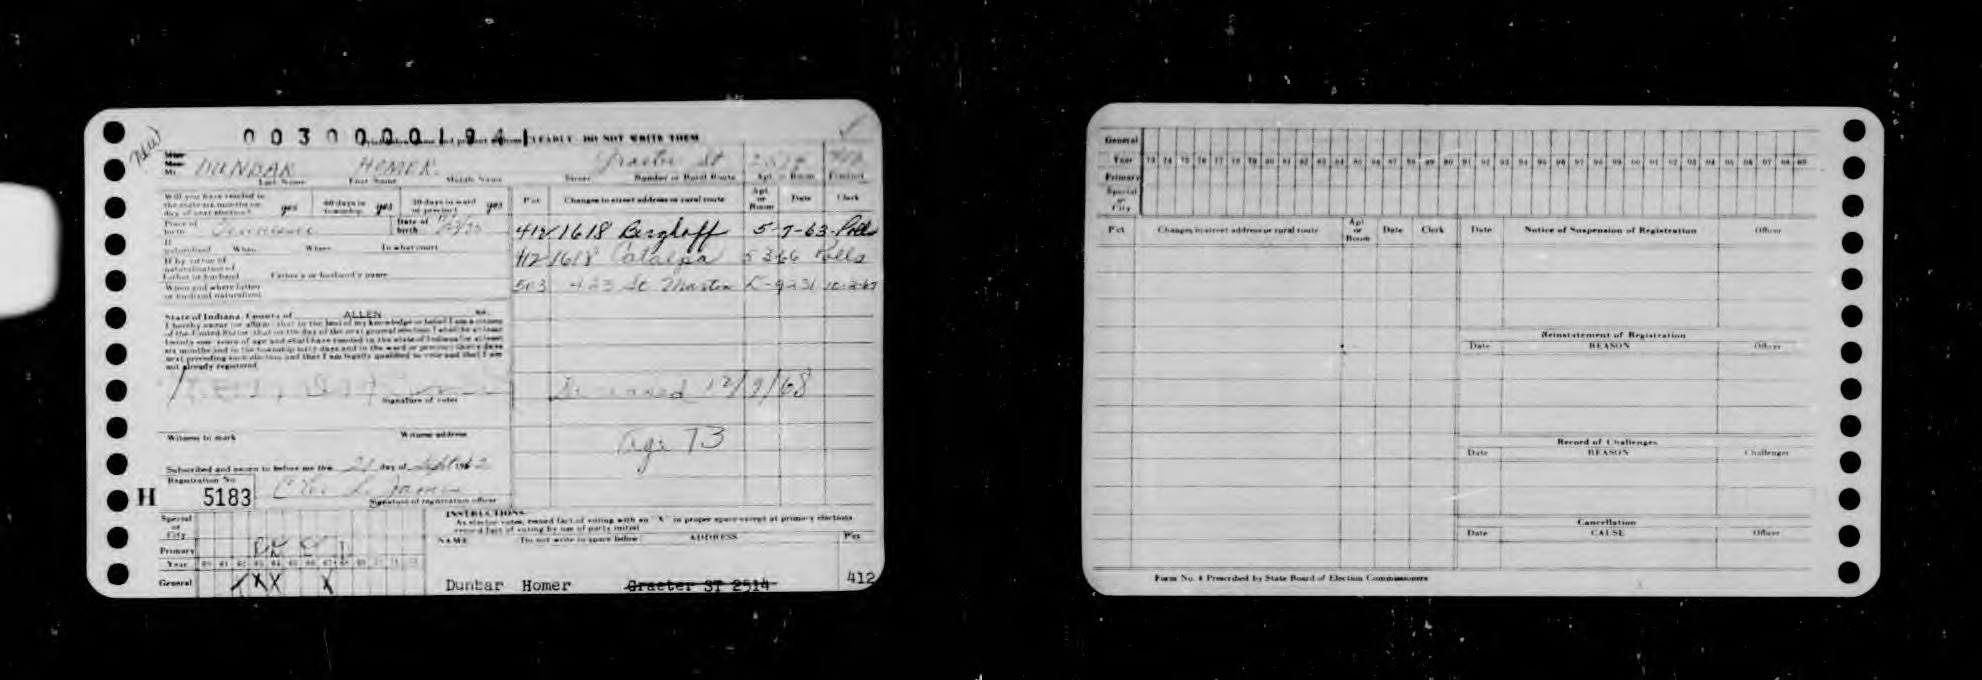 003000019 41 CLEARLY DO NOT WRITE THEM
New
Mr. DUNBAR HOMER Graeter St 2514 412
Last Name First Name Middle Name Street Number or Rural Route Apt. or Room Precinct
Will you have resided in the state six months on day of next election? yes 60 days in township yes 30 days in ward or precinct yes
Pct Changes in street address or rural route Apt or Room Date Clerk
Place of birth Tennessee Date of birth
412 1618 Berghoff 5-7-63 Polls
If naturalized When Where In what court
412 1618 Catalpa 5 3 66 Polls
If by virtue of naturalization of father or husband Father's or husband's name
When and where father or husband naturalized
503 423 St. Martin K-9231 10-2-67
State of Indiana, County of ALLEN ss.
I hereby swear (or affirm) that to the best of my knowledge or belief I am a citizen
of the United States that on the day of the next general election I shall be at least
twenty-one years of age and shall have resided in the state of Indiana for at least
six months and in the township sixty days and in the ward or precinct thirty days
next preceding such election and that I am legally qualified to vote and that I am
not already registered.
Signature of voter
Deceased 12/9/68
Age 73
Witness to mark Witness address
Subscribed and sworn to before me this 21 day of Sept 1962
Registration No.
H 5183
Signature of registration officer
INSTRUCTIONS
As elector votes, record fact of voting with an "X" in proper space except at primary elections
record fact of voting by use of party initial
Special or City
NAME Do not write in space below ADDRESS Pct
Primary
Year 60 61 62 63 64 65 66 67 68 69 70 71 72
General X X X X
Dunbar Homer Graeter ST 2514 412
General
Year 73 74 75 76 77 78 79 80 81 82 83 84 85 86 87 88 89 90 91 92 93 94 95 96 97 98 99 00 01 02 03 04 05 06 07 08 09
Primary
Special or City
Pct Changes in street address or rural route Apt or Room Date Clerk Date Notice of Suspension of Registration Officer
Reinstatement of Registration
Date REASON Officer
Record of Challenges
Date REASON Challenger
Cancellation
Date CAUSE Officer
Form No. 4 Prescribed by State Board of Election Commissioners